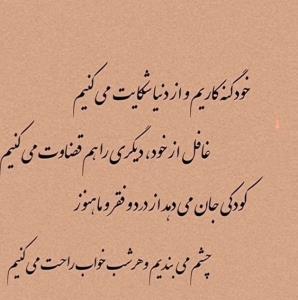 خود گنه کاریم و از دنیا شکایت می کنیم
غافل از خود، دیگری را هم قضاوت می کنیم
کودکی جان می دهد از درد و فقر و ما هنوز
چشم می بندیم و هر شب خواب راحت می کنیم